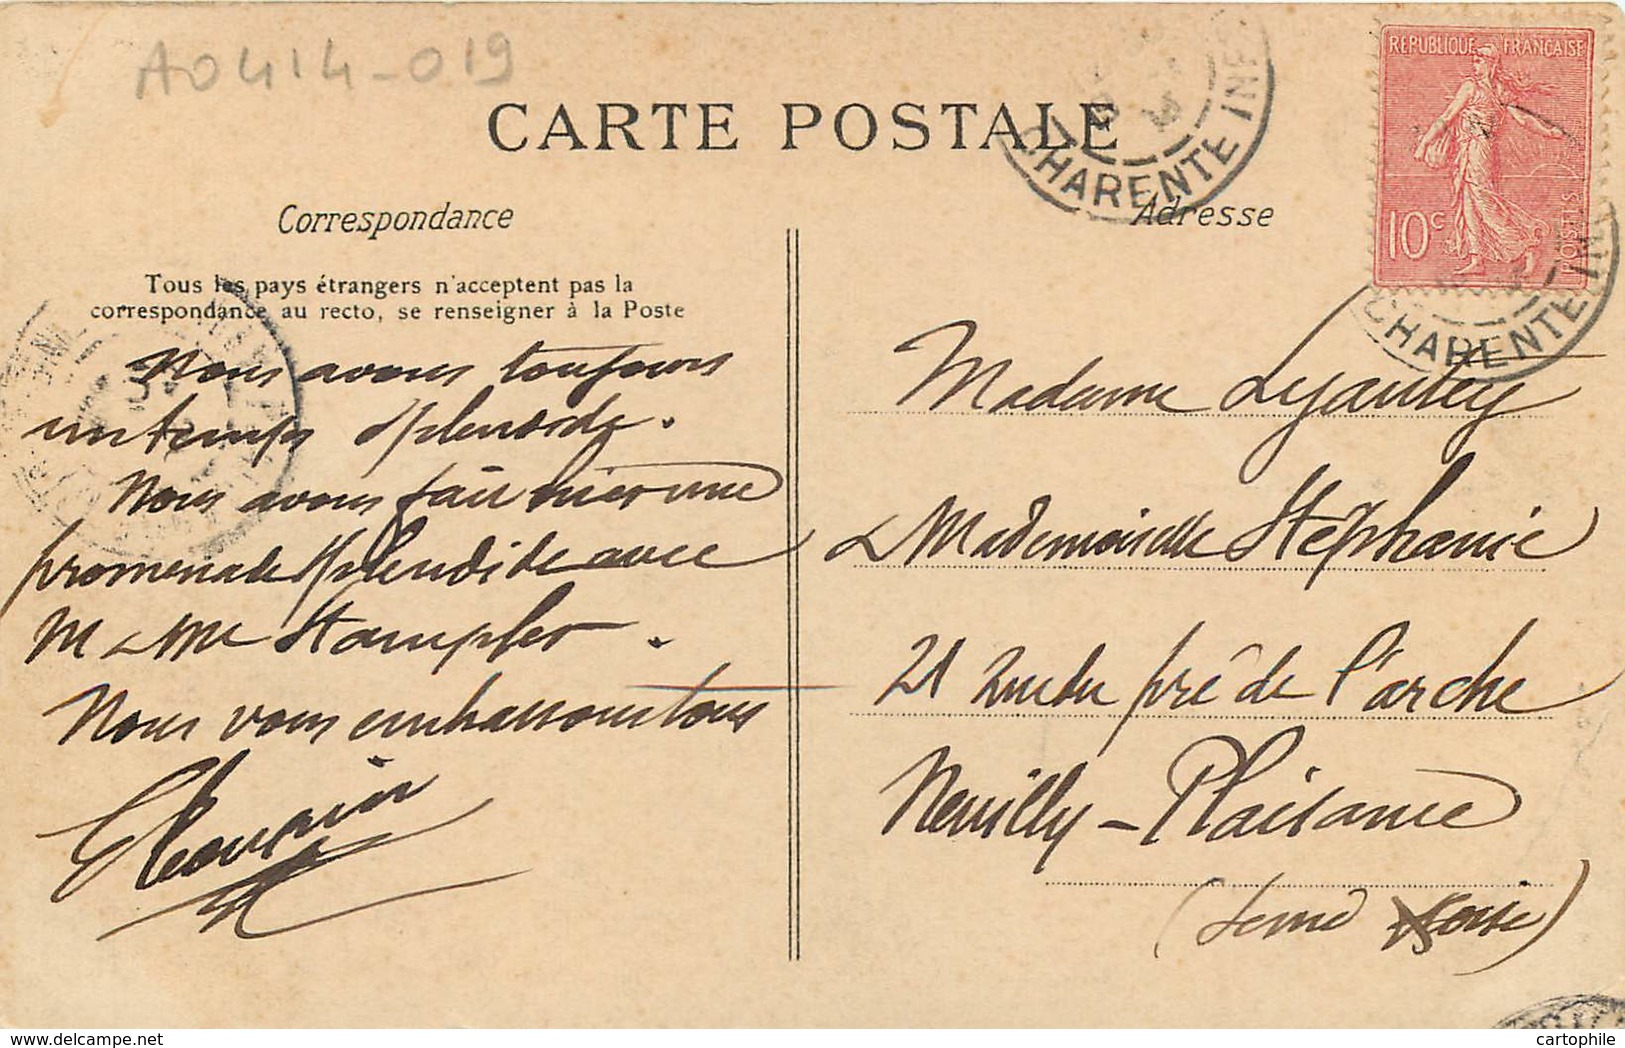 A0414-019
CARTE POSTALE
REPUBLIQUE FRANÇAISE
10c
POSTES
CHARENTE INF
CHARENTE INF
Correspondance
Adresse
Tous les pays étrangers n'acceptent pas la
correspondance au recto, se renseigner à la Poste
Nous avons toujours
un temps splendide.
Nous avons fait hier une
promenade splendide avec
M & Mme Stampfer.
Nous vous embrassons tous
Madame Lyautey
& Mademoiselle Stéphanie
21 Rue du pré de l'arche
Neuilly-Plaisance
(Seine & Oise)
delcampe.net
cartophile